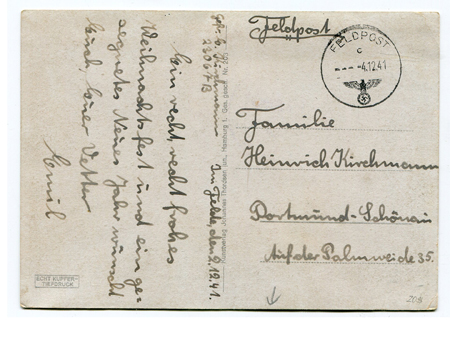 Feldpost
FELDPOST
c
-4.12.41
Familie
Heinrich Kirchmann
Dortmund-Schönau
Auf der Palmweide 35.
Kirchmann
22067B
Im Felde, den 2.12.41.
Ein recht, recht frohes
Weihnachtsfest und ein ge-
segnetes Neues Jahr wünscht
Euch, Euer Vetter
Emil
ECHT KUPFER-
TIEFDRUCK